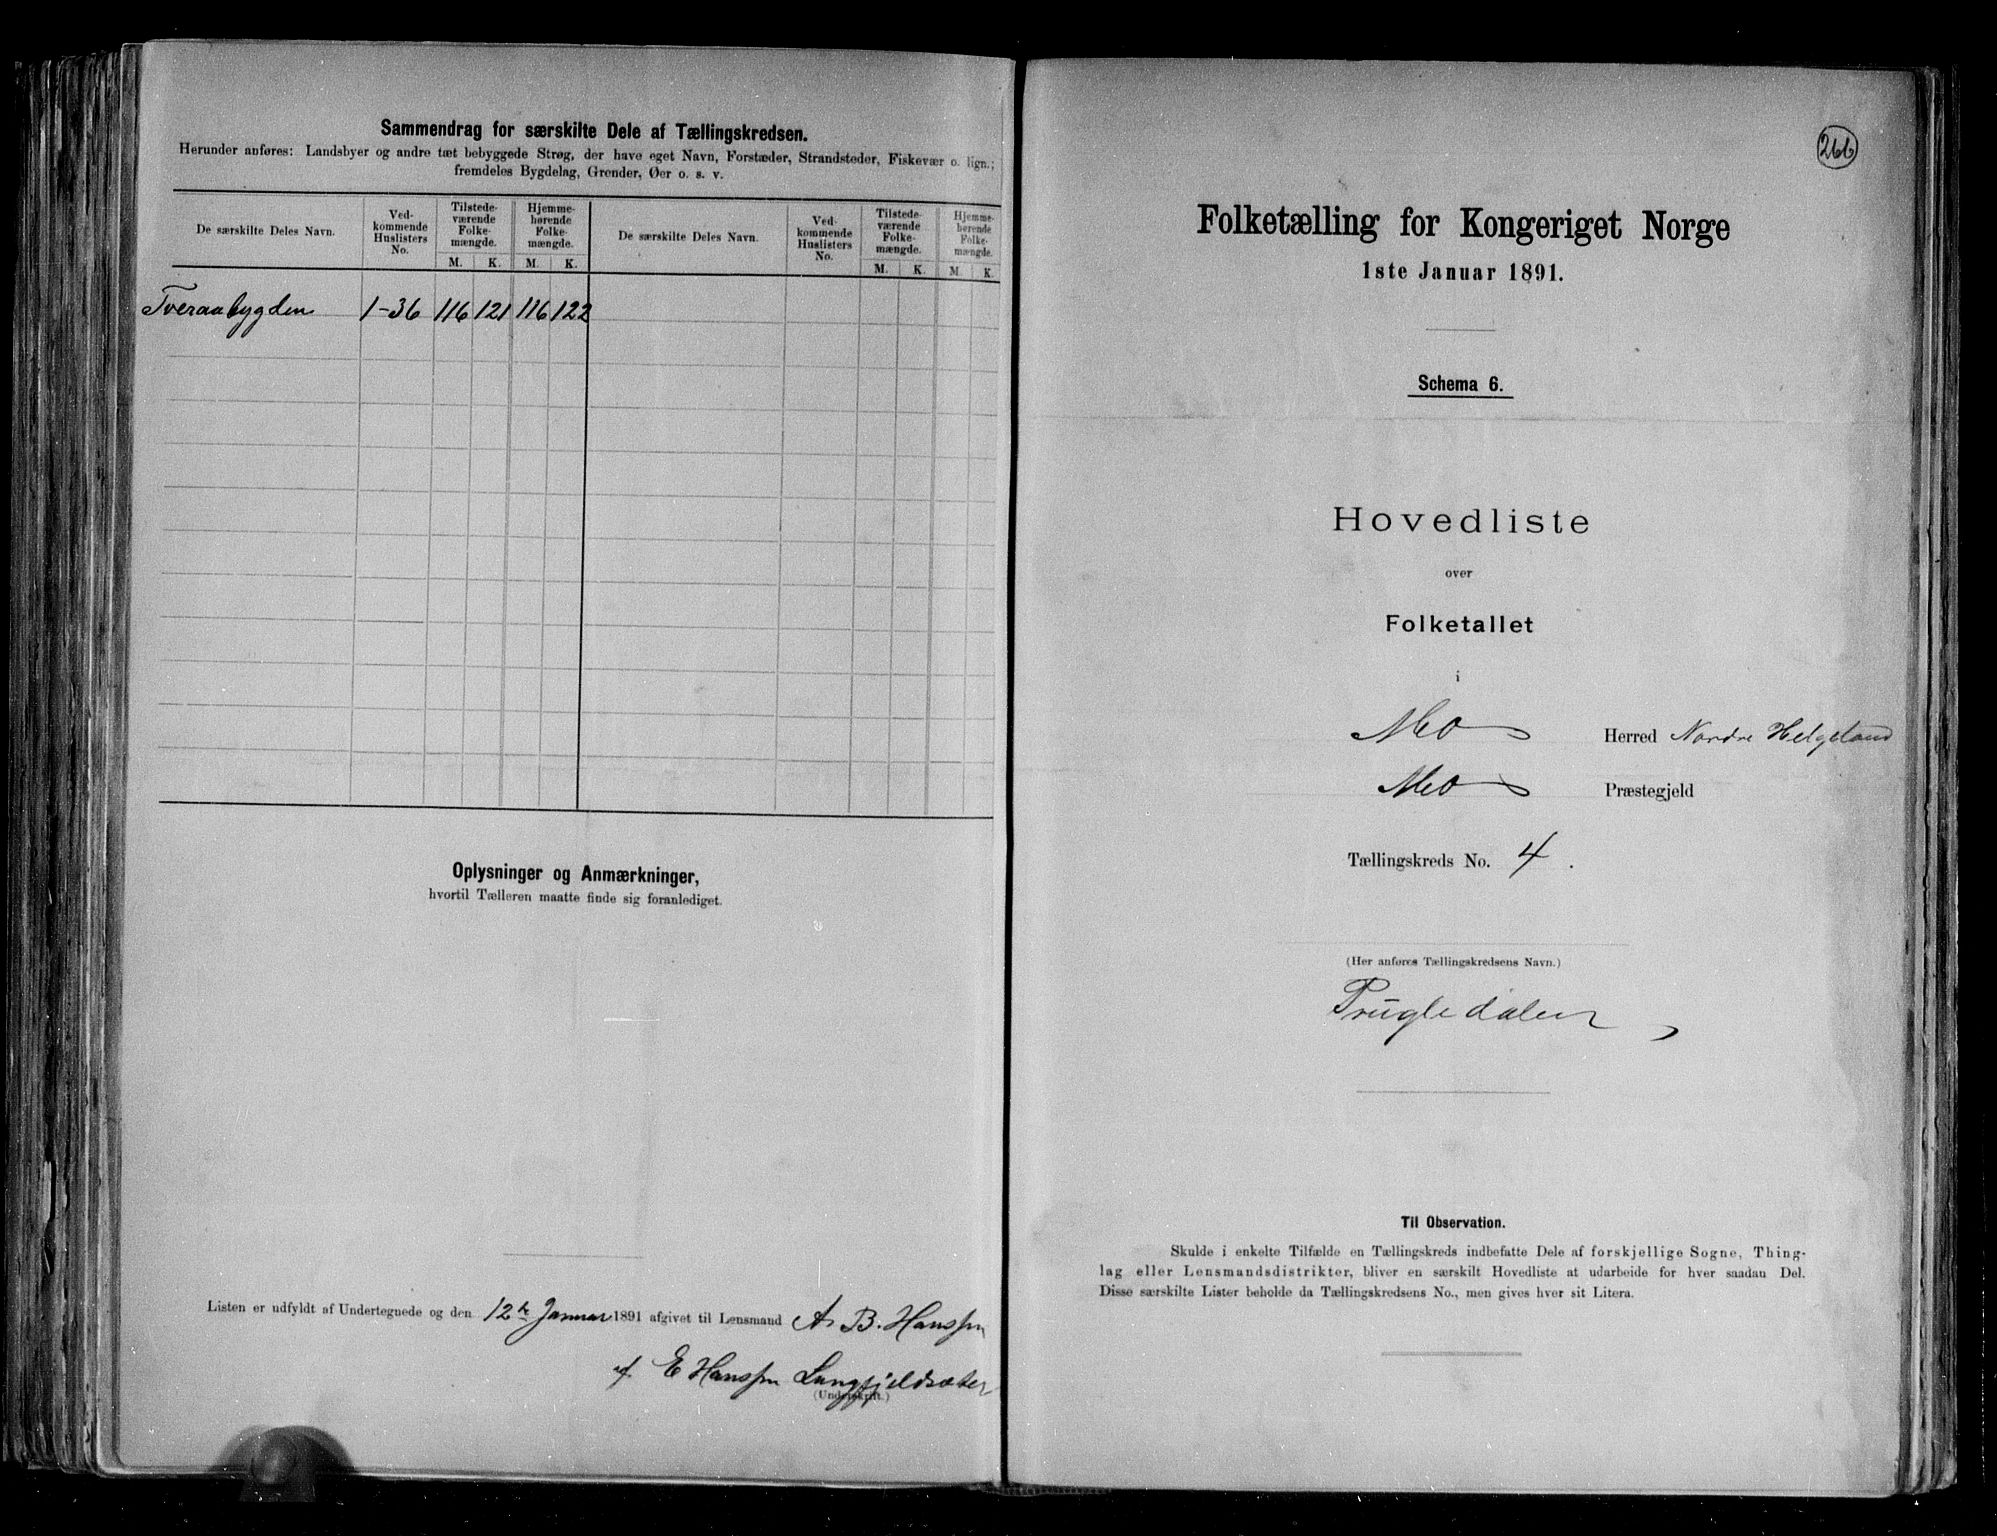 Sammendrag for særskilte Dele af Tællingskredsen.
Herunder anføres: Landsbyer og andre tæt bebyggede Strøg, der have eget Navn, Forstæder, Strandsteder, Fiskevær o. lign.;
fremdeles Bygdelag, Grender, Øer o. s. v.
De særskilte Deles Navn. Ved-kommende Huslisters No. Tilstede-værende Folke-mængde. Hjemme-hørende Folke-mængde. De særskilte Deles Navn. Ved-kommende Huslisters No. Tilstede-værende Folke-mængde. Hjemme-hørende Folke-mængde.
M. K. M. K. M. K. M. K.
Tveraabygden 1-36 116 121 116 122
Oplysninger og Anmærkninger,
hvortil Tælleren maatte finde sig foranlediget.
Listen er udfyldt af Undertegnede og den 12te Januar 1891 afgivet til Lensmand A. B. Hanssen
af E Hanssen Langfjeldsæter
(Underskrift.)
266
Folketælling for Kongeriget Norge
1ste Januar 1891.
Schema 6.
Hovedliste
over
Folketallet
i
Mo Herred Nordre Helgeland
Mo Præstegjeld
Tællingskreds No. 4.
(Her anføres Tællingskredsens Navn.)
Prugledalen
Til Observation.
Skulde i enkelte Tilfælde en Tællingskreds indbefatte Dele af forskjellige Sogne, Thing-
lag eller Lensmandsdistrikter, bliver en særskilt Hovedliste at udarbeide for hver saadan Del.
Disse særskilte Lister beholde da Tællingskredsens No., men gives hver sit Litera.